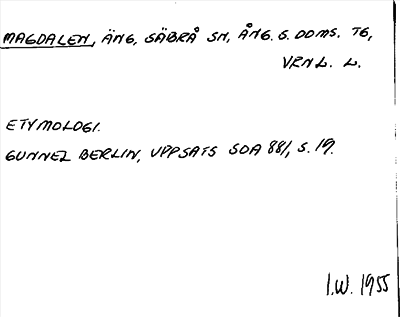 MAGDALEN, ÄNG, SÄBRÅ SN, ÅNG. S. DOMS. TG,
VRNL. L.
ETYMOLOGI.
GUNNEL BERLIN, UPPSATS SOA 881, S. 19.
I.W. 1955